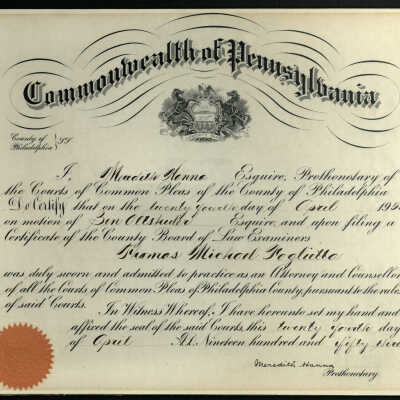 Commonwealth of Pennsylvania
County of
Philadelphia } SS
I, Meredith Hanna Esquire, Prothonotary of
the Courts of Common Pleas of the County of Philadelphia
Do Certify that on the twenty fourth day of April 195
on motion of Ben Esquire, and upon filing a
Certificate of the County Board of Law Examiners
Thomas Michael Foglietta
was duly sworn and admitted to practice as an Attorney and Counsellor
of all the Courts of Common Pleas of Philadelphia County, pursuant to the rules
of said Courts.
In Witness Whereof, I have hereunto set my hand and
affixed the seal of the said Courts, this twenty fourth day
of April A.D. Nineteen hundred and fifty
Meredith Hanna
Prothonotary